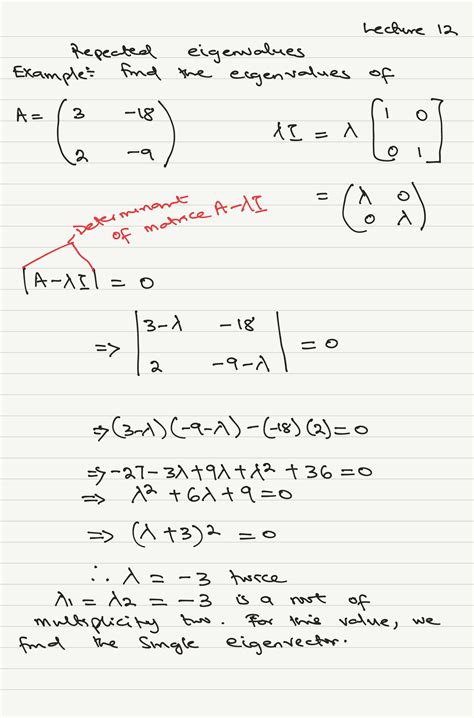 Lecture 12
Repeated eigenvalues
Example:- find the eigenvalues of
A = ( 3 -18
2 -9 )
λI = λ [ 1 0
0 1 ]
= ( λ 0
0 λ )
Determinant
of matrice A-λI
|A-λI| = 0
=> | 3-λ -18
2 -9-λ | = 0
=> (3-λ)(-9-λ) - (-18)(2) = 0
=> -27-3λ+9λ+λ² + 36 = 0
=> λ² + 6λ + 9 = 0
=> (λ+3)² = 0
∴ λ = -3 twice
λ1 = λ2 = -3 is a root of
multiplicity two. For this value, we
find the single eigenvector.